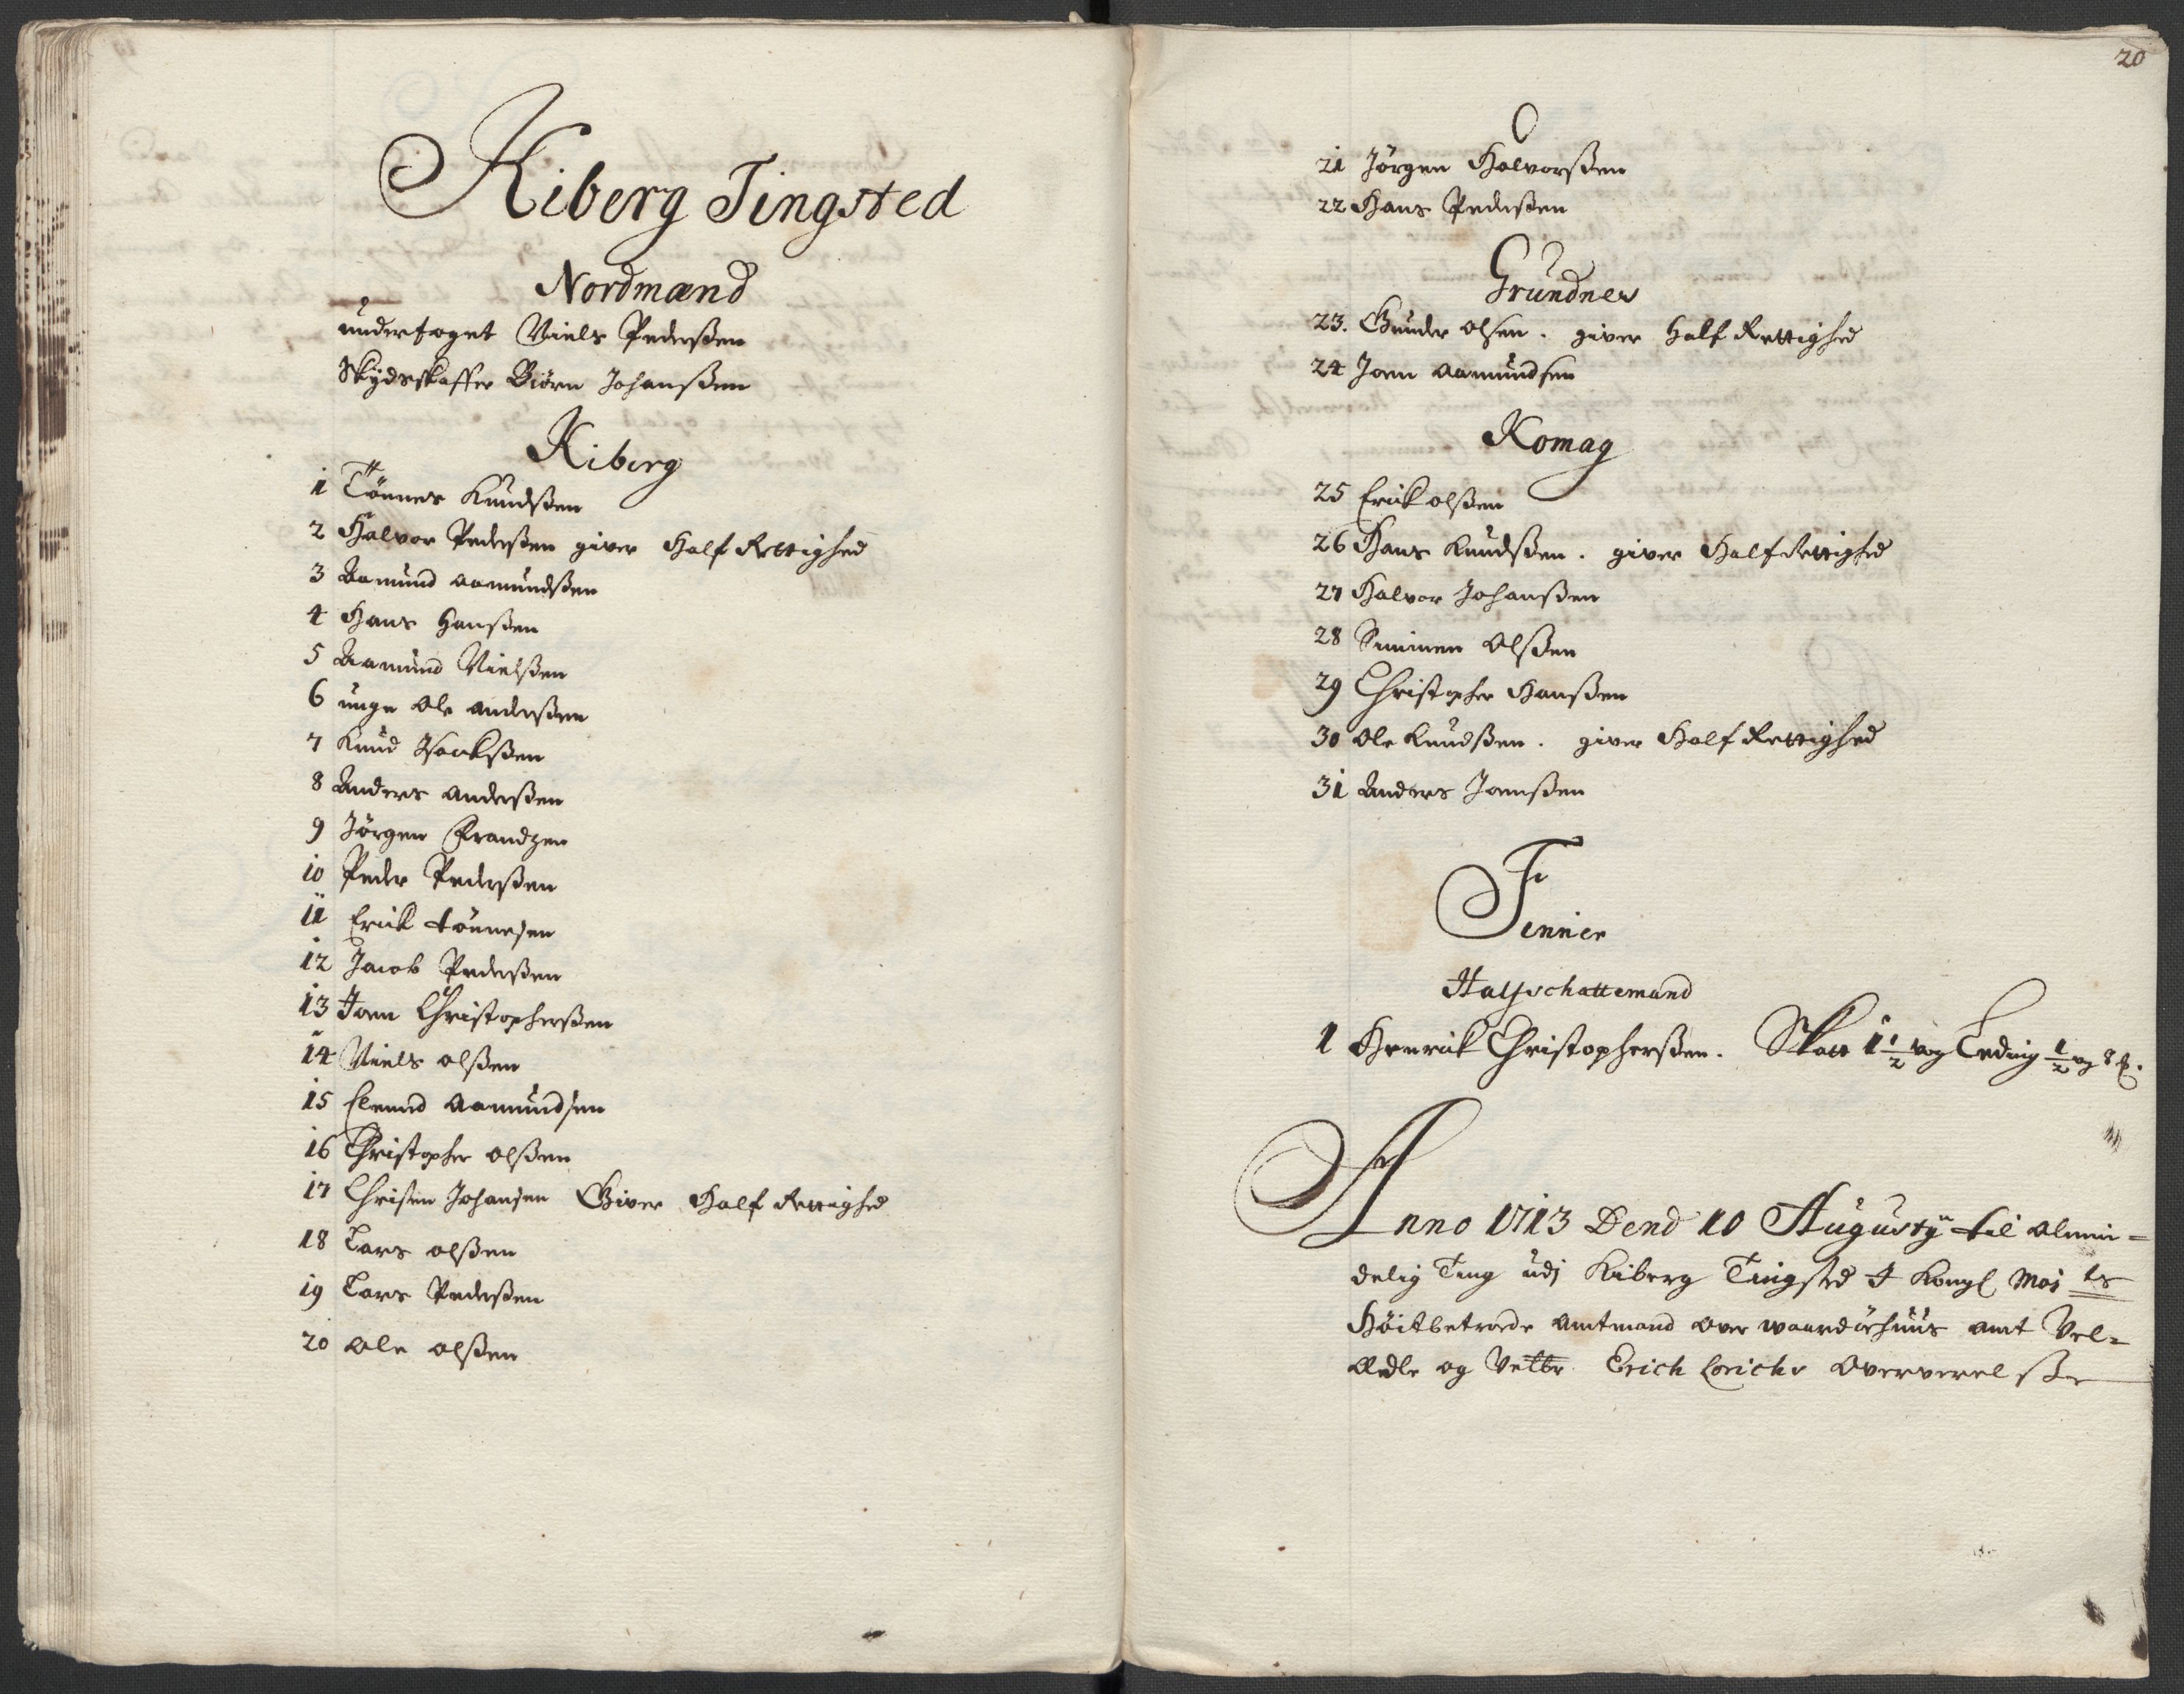 Kiberg Tingsted
Nordmænd
underfoget Niels Pederßen
Skydsskaffer Biörn Johanßen
Kiberg
1 Tönnes Knudßen
2 Halvor Pederßen giver Half Rettighed
3 Aamund Aamundßen
4 Hans Hanßen
5 Aamund Nielßen
6 unge Ole Anderßen
7 Knud Isackßen
8 Anders Anderßen
9 Jörgen Frandzen
10 Peder Pederßen
11 Erick Tönnesen
12 Jacob Pederßen
13 Joen Christopherßen
14 Niels Olßen
15 Elend Aamundsen
16 Christopher Olßen
17 Christen Johansen Giver Half Rettighed
18 Lars Olßen
19 Lars Pederßen
20 Ole Olßen
20
21 Jörgen Halvorßen
22 Hans Pederßen
Grundnes
23. Gunder Olsen. giver Half Rettighed
24 Joen Aamundsen
Komag
25 Erick Olßen
26 Hans Knudßen. giver Half Rettighed
27 Halvor Johanßen
28 Simmen Olßen
29 Christopher Hanßen
30 Ole Knudßen. giver Half Rettighed
31 Anders Joenßen
Finner
Halfschattemand
1 Henrick Christopherßen. Skatt 1 1/2 vog Leding 1/2 vog
Anno 1713 Dend 10 Augustij til Almin=
delig Ting udj Kiberg Tingsted J Kongl Maj ts
Höitbetroede Amtmand over Waardöehuus Amt Vel=
Ædle og Velbr Erich Lorichs Oververelße